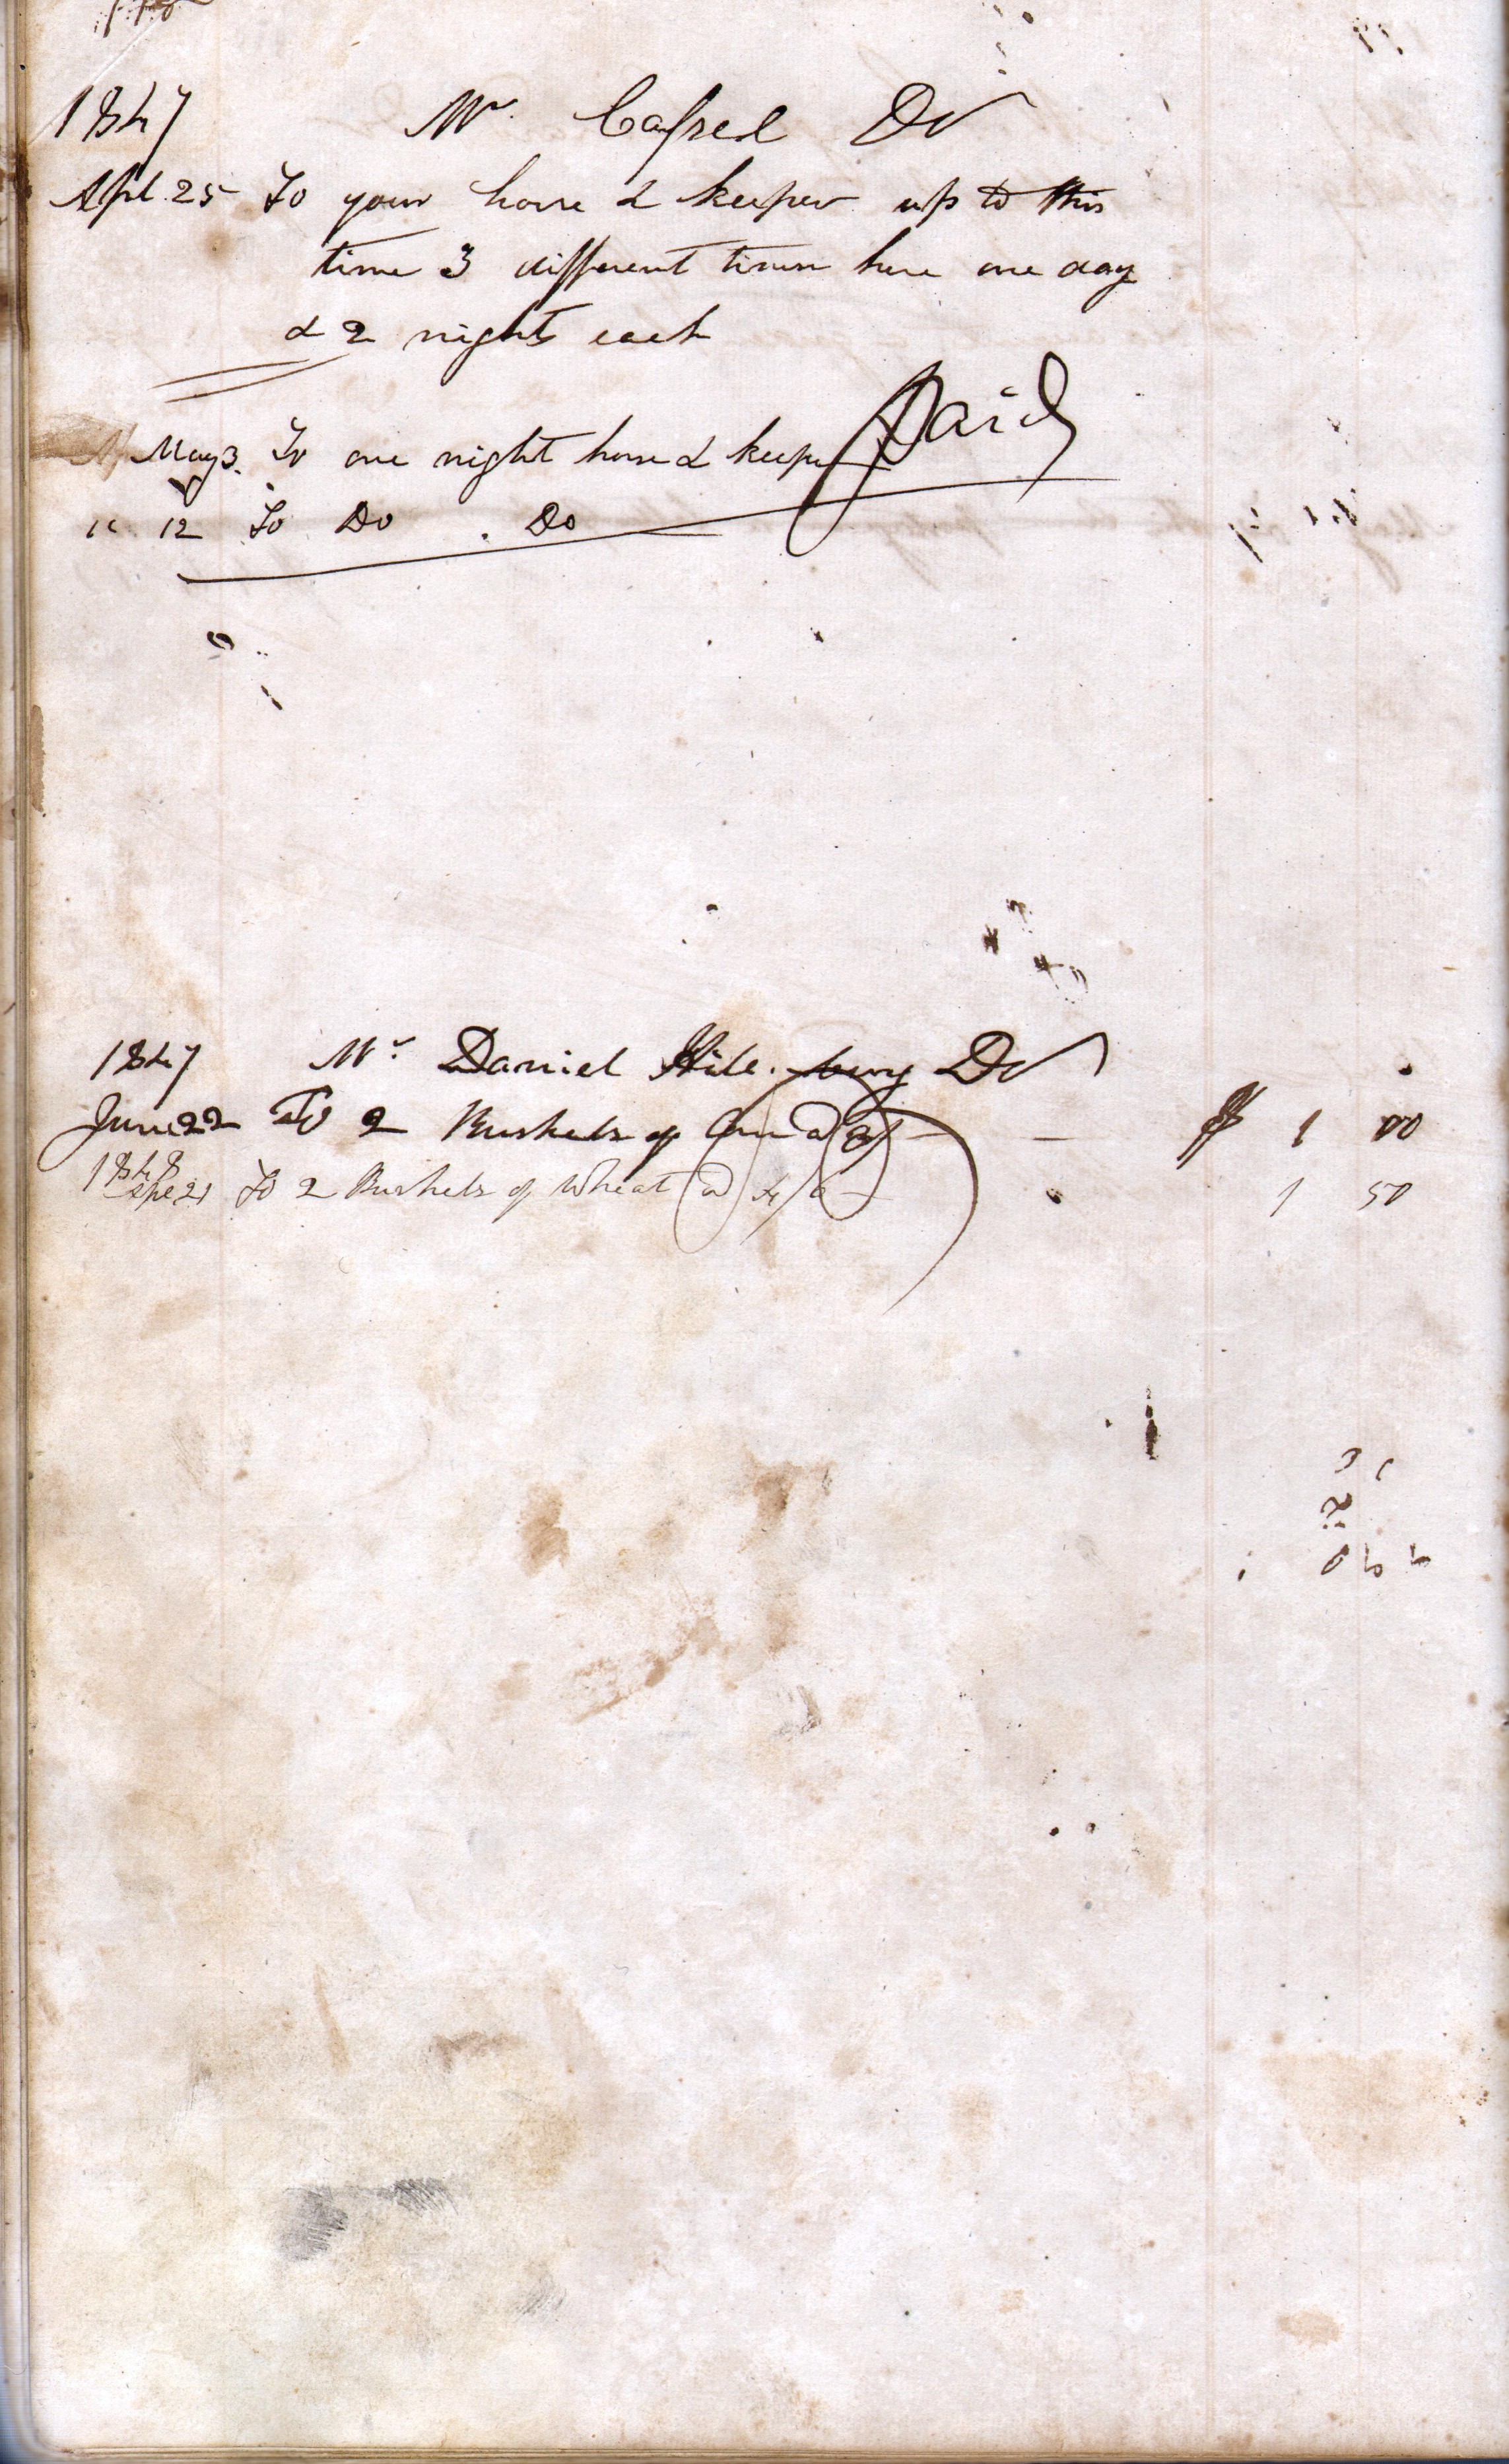 1847 Mr. Cassel Dr
Apl 25 To your horse & keeper up to this
time 3 different times here one day
& 2 nights each
Paid
May 3. To one night horse & keeper
" 12 To Do . Do
1847 Mr. Daniel Hile Dr
June 22 To 2 Bushels of Corn a 3/ $ 1 00
1848
21 To 2 Bushels of Wheat a 1 50